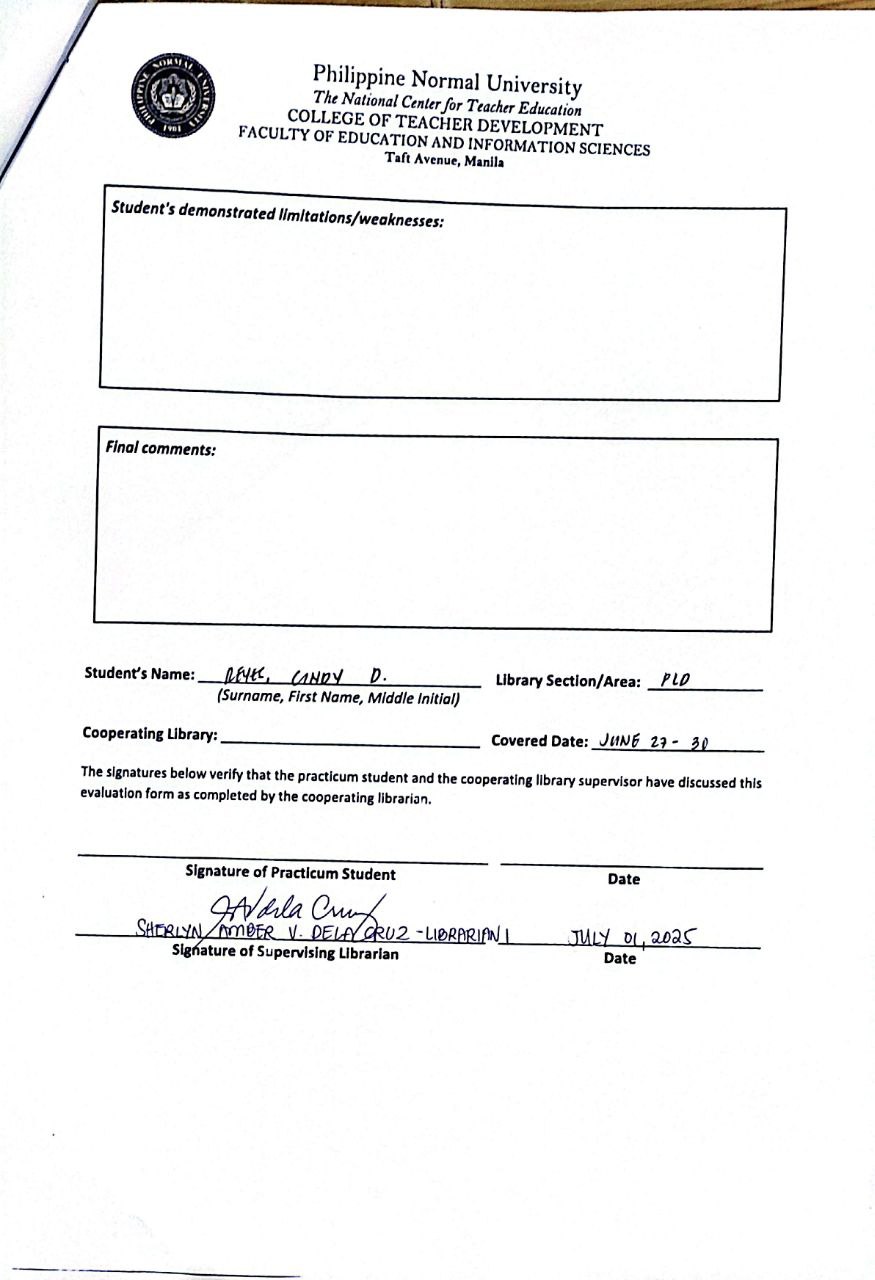 PHILIPPINE NORMAL UNIVERSITY
1901
Philippine Normal University
The National Center for Teacher Education
COLLEGE OF TEACHER DEVELOPMENT
FACULTY OF EDUCATION AND INFORMATION SCIENCES
Taft Avenue, Manila
Student's demonstrated limitations/weaknesses:
Final comments:
Student's Name: REYES, CANDY D. Library Section/Area: PLD
(Surname, First Name, Middle Initial)
Cooperating Library: Covered Date: JUNE 27 - 30
The signatures below verify that the practicum student and the cooperating library supervisor have discussed this
evaluation form as completed by the cooperating librarian.
Signature of Practicum Student Date
SHERLYN AMBER V. DELA CRUZ - LIBRARIAN I JULY 01, 2025
Signature of Supervising Librarian Date